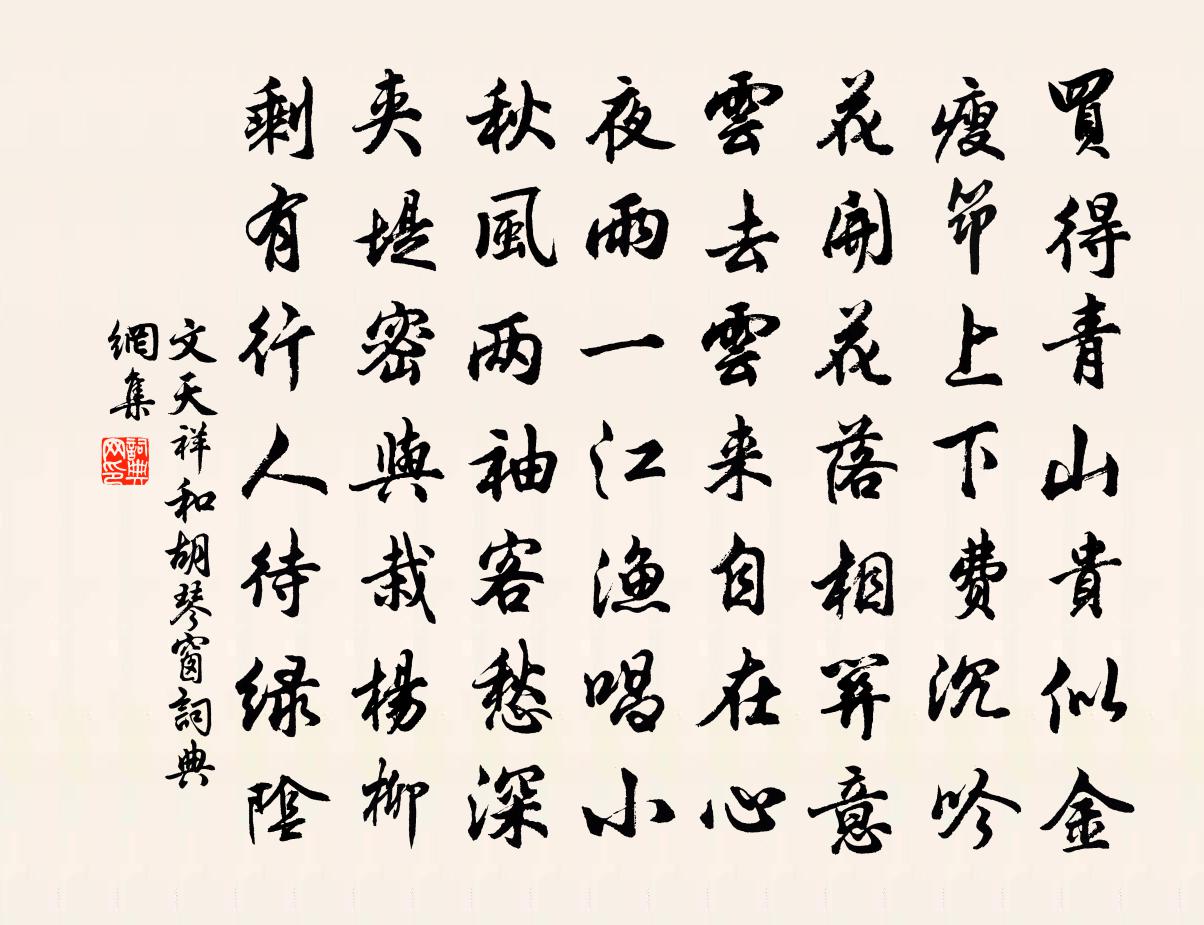 買得青山貴似金
瘦筇上下費沉吟
花開花落相關意
雲去雲来自在心
夜雨一江漁唱小
秋風两袖客愁深
夾堤密與栽楊柳
剩有行人待緑陰
文天祥和胡琴窗詞典
網集
詞典网印